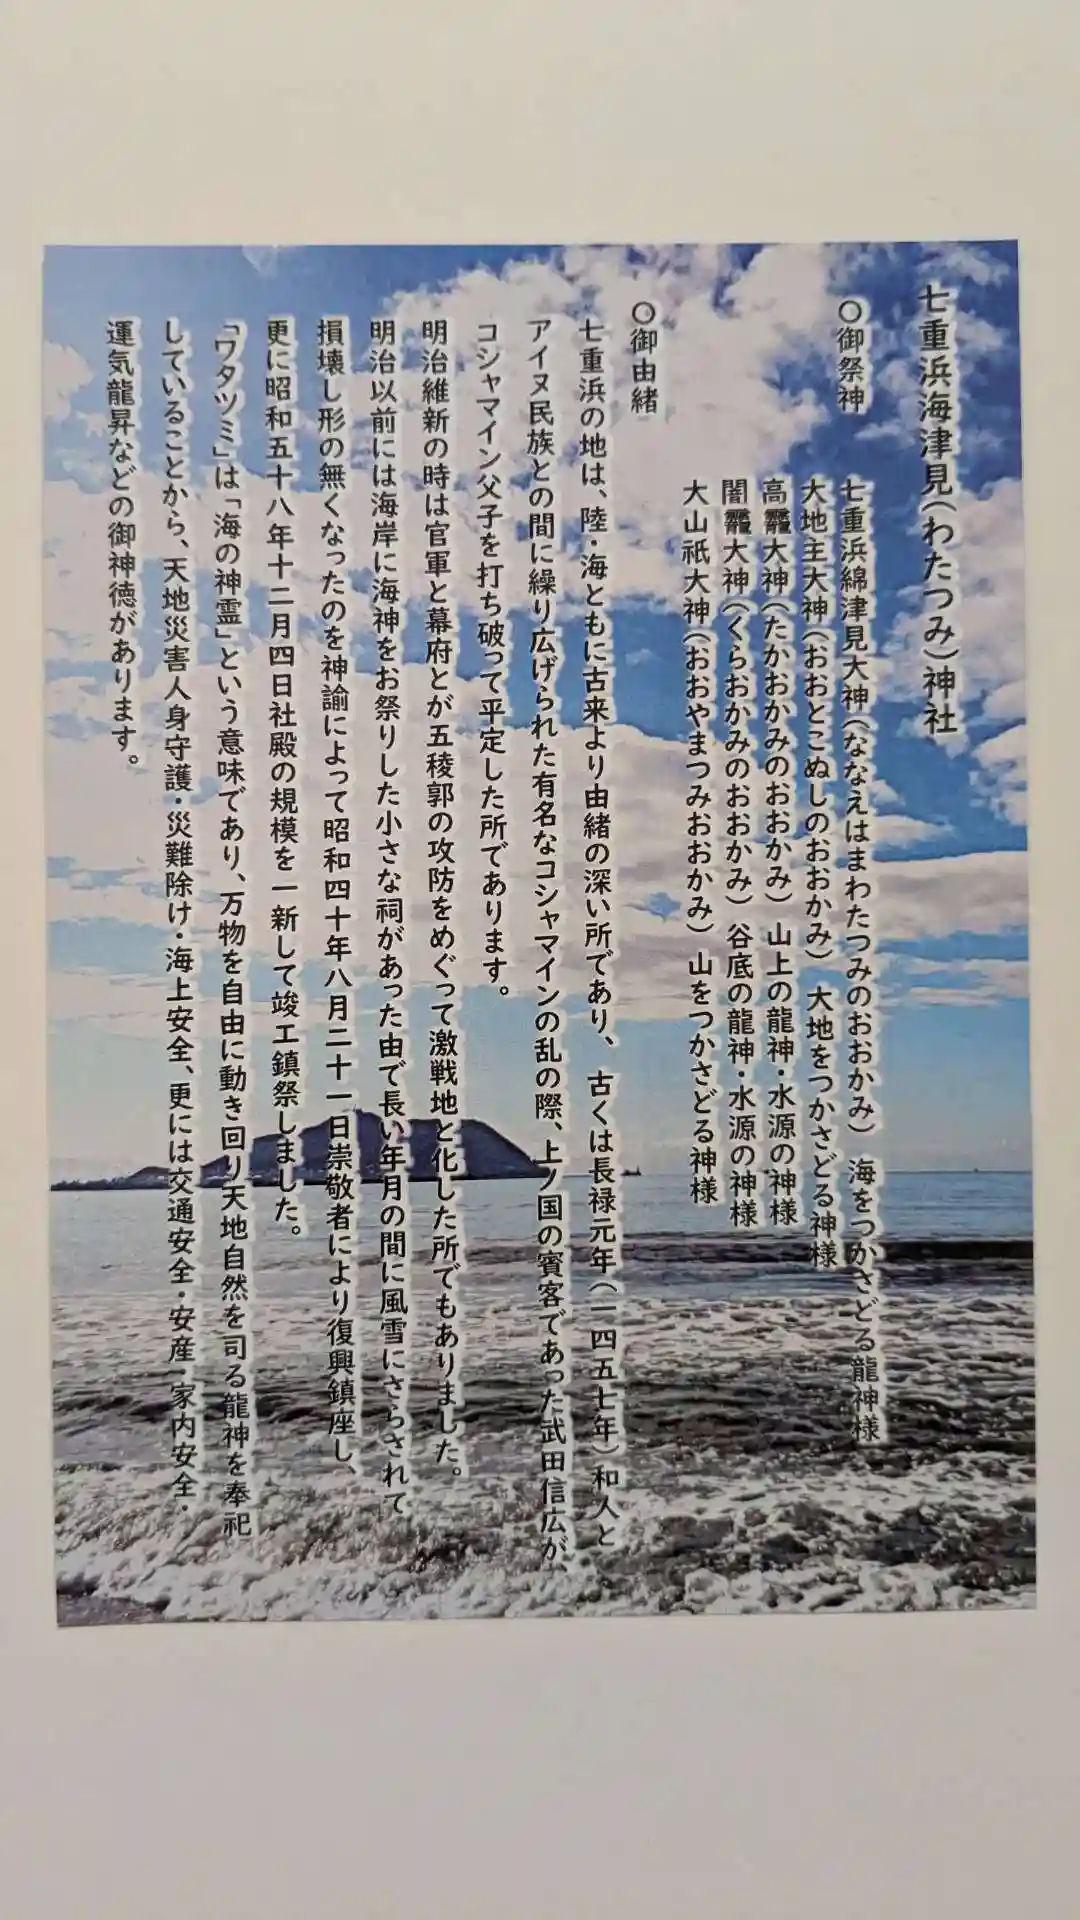 七重浜海津見(わたつみ)神社
〇御祭神
七重浜綿津見大神(ななえはまわたつみのおおかみ) 海をつかさどる龍神様
大地主大神(おおとこぬしのおおかみ) 大地をつかさどる神様
高龗大神(たかおかみのおおかみ) 山上の龍神・水源の神様
闇龗大神(くらおかみのおおかみ) 谷底の龍神・水源の神様
大山祇大神(おおやまつみおおかみ) 山をつかさどる神様
〇御由緒
七重浜の地は、陸・海ともに古来より由緒の深い所であり、 古くは長禄元年(一四五七年)和人と
アイヌ民族との間に繰り広げられた有名なコシャマインの乱の際、上ノ国の賓客であった武田信広が、
コシャマイン父子を打ち破って平定した所であります。
明治維新の時は官軍と幕府とが五稜郭の攻防をめぐって激戦地と化した所でもありました。
明治以前には海岸に海神をお祭りした小さな祠があった由で長い年月の間に風雪にさらされて
損壊し形の無くなったのを神諭によって昭和四十年八月二十一日崇敬者により復興鎮座し、
更に昭和五十八年十二月四日社殿の規模を一新して竣工鎮祭しました。
「ワタツミ」は「海の神霊」という意味であり、万物を自由に動き回り天地自然を司る龍神を奉祀
していることから、天地災害人身守護・災難除け・海上安全、更には交通安全・安産・家内安全・
運気龍昇などの御神徳があります。